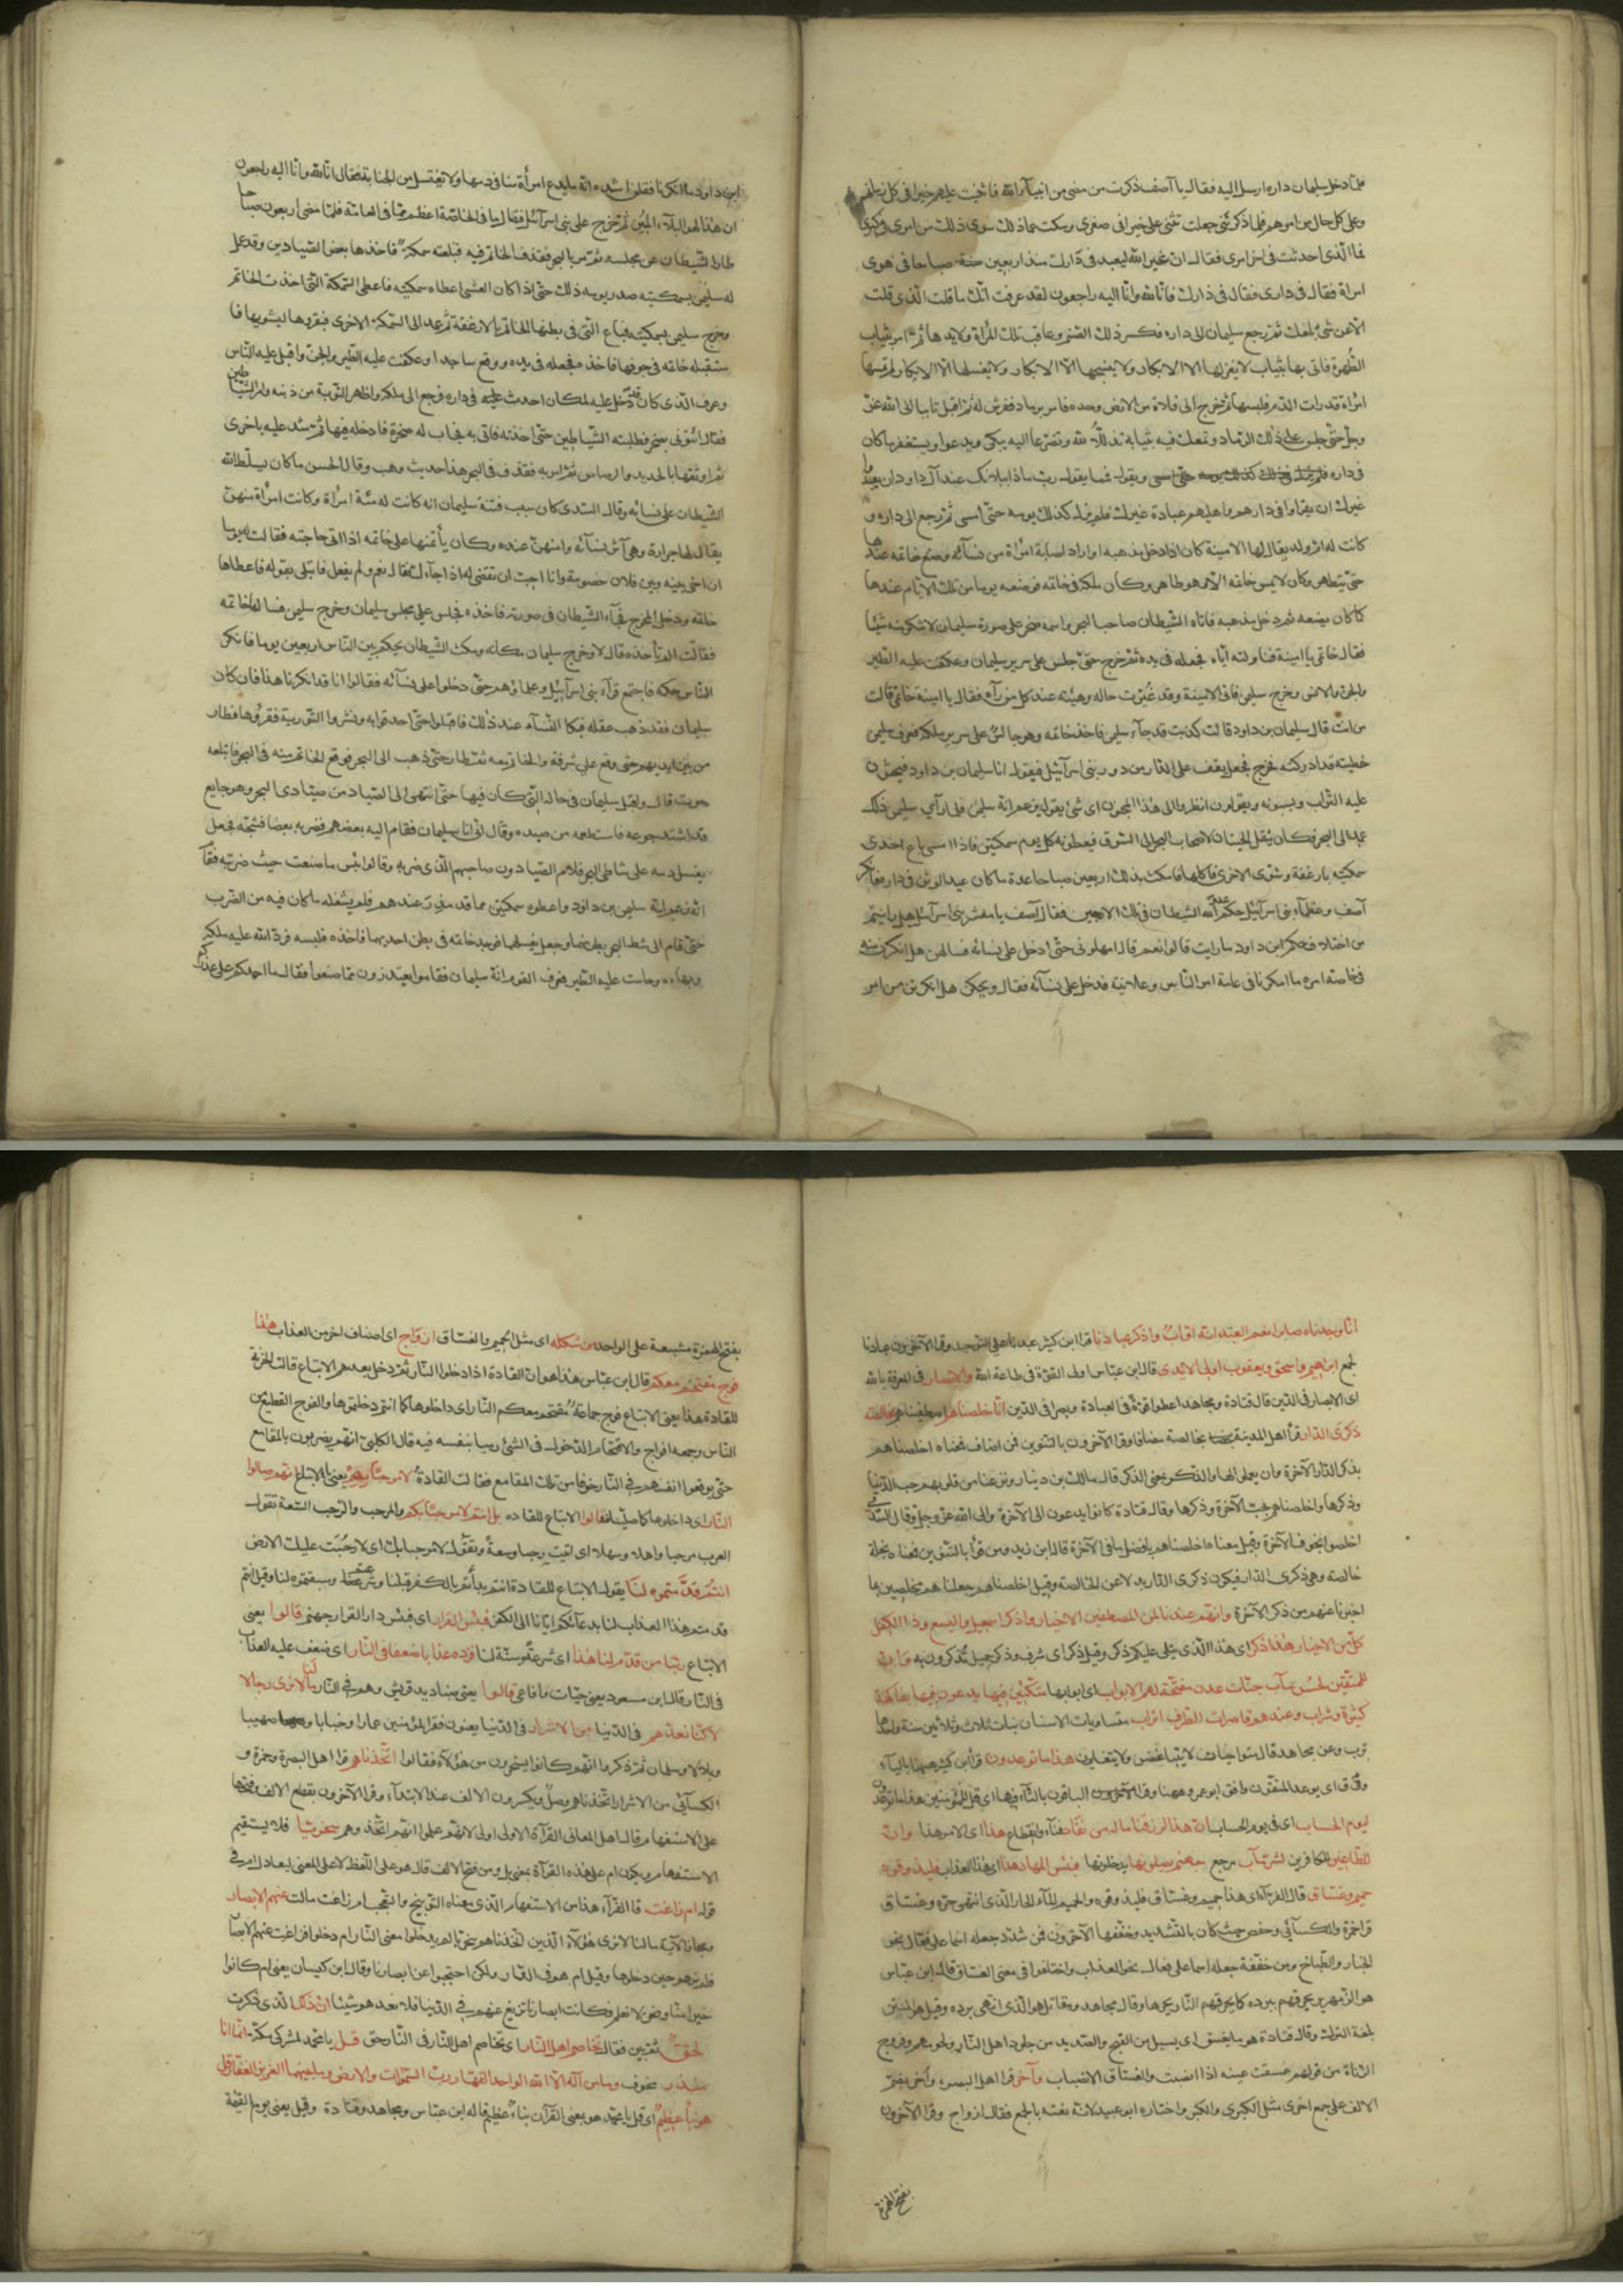 فلما دخل سليمان داره ارسل اليه فقال يا آصف ذكرت من مضى من انبياء الله فاثنيت عليهم خيرا في كل زمانهم
وعلى كل حال من امرهم فلما ذكرتني جعلت تثني علي خيرا في صغري وسكت عما ذلك سوى ذلك من امري في كبري
فما الذي احدثت في اخر امري فقال ان غير الله ليعبد في دارك منذ اربعين صباحا في هوى
امراة فقال في داري فقال في دارك فانا لله وانا اليه راجعون لقد عرفت انك ما قلت الذي قلت
الا عن شئ بلغك ثم رجع سليمان الى داره فكسر ذلك الصنم وعاقب تلك المرأة وولايدها ثم امر بثياب
الطهرة فاتى بها بثياب لا يغزلها الا الابكار ولا ينسجها الا الابكار ولا يغسلها الا الابكار لم تمسها
امرأة قد رأت الدم فلبسها ثم خرج الى فلاة من الارض وحده فامر برماد ففرش له ثم اقبل تايبا الى الله عز
وجل حتى جلس على ذلك الرماد وتمعك فيه بثيابه تذللا لله وتضرعا اليه يبكى ويدعوا ويستغفر مما كان
في داره ويقول فيما يقول رب ماذا ببلائك عند آل داود ان يعبدوا
غيرك ان يقروا في دارهم واهليهم عبادة غيرك فلم يزل كذلك يومه حتى امسى ثم رجع الى داره و
كانت له ام ولد يقال لها الامينة كان اذا دخل مذهبه او اراد اصابة امرأة من نسآئه وضع خاتمه عندها
حتى يتطهر وكان لا يمس خاتمه الا وهو طاهر وكان ملكه في خاتمه فوضعه يوما من تلك الايام عندها
كما كان يضعه ثم دخل مذهبه فاتاها الشيطان صاحب البحر واسمه صخر على صورة سليمان لا تنكر منه شيئا
فقال خاتمي يا امينة فناولته اياه فجعله في يده ثم خرج حتى جلس على سرير سليمان وعكفت عليه الطير
والجن والانس وخرج سليمن فاتى الامينة وقد غيرت حاله وهيئته عند كل من رآه فقال يا امينة خاتمي قالت
من انت قال سليمان بن داود قالت كذبت قد جآء سليمن فاخذ خاتمه وهو جالس على سرير ملكه فعرف سليمن
خطيئته قد ادركته فخرج فجعل يقف على الدار من دور بني اسرآئيل فيقول انا سليمان بن داود فيحثون
عليه التراب ويسبونه ويقولون انظروا الى هذا المجنون اى شئ يقول يزعم انه سليمن فلما رآي سليمن ذلك
عمد الى البحر فكان ينقل الحيتان لاصحاب البحر الى السوق فيعطونه كل يوم سمكتين فاذا امسى باع احدى
سمكتيه بارغفة وشوى الاخرى فاكلها فمكث بذلك اربعين صباحا عدة ما كان عبد الوثن في داره فانكر
آصف وعظمآء بني اسرآئيل حكم عدو الله الشيطان في تلك الاربعين فقال آصف يا معشر بني اسرآئيل هل رايتم
من اختلاف حكم ابن داود ما رايت قالوا نعم قال امهلوني حتى ادخل على نسائه فاسالهن هل انكرن منه
في خاصة امره ما انكرنا في عامة امر الناس وعلانيته فدخل على نسآئه فقال ويحكن هل انكرتن من امر
ابن داود ما انكرنا فقلن اشده انه ما يدع امرأة منا في دمها ولا يغتسل من الجنابة فقال انا لله وانا اليه راجعون
ان هذا لهو البلآء المبين ثم خرج على بني اسرآئيل فقال ما في الخاصة اعظم مما في العامة فلما مضى اربعون صباحا
طار الشيطان عن مجلسه ثم مر بالبحر فقذف الخاتم فيه فبلعته سمكة فاخذها بعض الصيادين وقد عمل
له سليمن بسمكتيه صدر يومه ذلك حتى اذا كان العشي اعطاه سمكتيه فاعطى السمكة التي اخذت الخاتم
وخرج سليمن بسمكتيه فباع التي في بطنها الخاتم بالارغفة ثم عمد الى السمكة الاخرى فبقرها ليشويها فا
ستقبله خاتمه في جوفها فاخذه فجعله في يده ووقع ساجدا وعكفت عليه الطير والجن واقبل عليه الناس
وعرف الذي كان قد دخل عليه لما كان احدث في داره فرجع الى ملكه واظهر التوبة من ذنبه وامر الشياطين
فقال ائتوني بصخر فطلبته الشياطين حتى اخذته فاتي به فجاب له صخرة فادخله فيها ثم شد عليه باخرى
ثم اوثقها بالحديد والرصاص ثم امر به فقذف في البحر هذا حديث وهب وقال الحسن ما كان ليسلط الله
الشيطان على نسائه وقال السدى كان سبب فتنة سليمان انه كانت له مئة امرأة وكانت امرأة منهن
يقال لها جرادة وهي آثر نسآئه وامنهن عنده وكان يأتمنها على خاتمه اذا اتى حاجته فقالت له يوما
ان اخي بينه وبين فلان خصومة وانا احب ان تقضي له اذا جآءك فقال نعم ولم يفعل فابتلى بقوله فاعطاها
خاتمه ودخل المخرج فجآء الشيطان في صورته فاخذه فجلس على مجلس سليمان وخرج سليمن فسالها خاتمه
فقالت الم تأخذه قال لا وخرج سليمان مكانه ومكث الشيطان يحكم بين الناس اربعين يوما فانكر
الناس حكمه فاجتمع قرآء بني اسرآئيل وعلماؤهم حتى دخلوا على نسآئه فقالوا انا قد انكرنا هذا فان كان
سليمان فقد ذهب عقله فبكا النسآء عند ذلك فاقبلوا حتى احدقوا به ونشروا التورية فقرؤها فطار
من بين ايديهم حتى وقع على شرفة والخاتم معه ثم طار حتى ذهب الى البحر فوقع الخاتم منه في البحر فابتلعه
حوت قال واقبل سليمان في حاله التي كان فيها حتى انتهى الى الصياد من صيادى البحر وهو جايع
قد اشتد جوعه فاستطعمه من صيده وقال انى انا سليمان فقام اليه بعضهم فضربه بعصا فشجه فجعل
يغسل دمه على شاطى البحر فلام الصيادون صاحبهم الذى ضربه وقالوا بئس ما صنعت حيث ضربته فقال
انه زعم انه سليمن بن داود واعطوه سمكتين مما قد مذر عندهم فلم يشغله ما كان فيه من الضرب
حتى قام الى شط البحر بطنهما وجعل يغسلهما فوجد خاتمه في بطن احديهما فاخذه فلبسه فرد الله عليه ملكه
وبهاءه وحامت عليه الطير فعرف القوم انه سليمان فقاموا يعتذرون مما صنعوا فقال ما احمدكم على عذركم
انا وجدناه صابرا نعم العبد انه اواب واذكر عبادنا قرا ابن كثير عبدنا على التوحيد وقرا الآخرون عبادنا
لجمع ابرهيم واسحق ويعقوب اولى الايدى قال ابن عباس اولى القوة في طاعة الله والابصار في المعرفة بالله
اى الابصار في الدين قال قتادة ومجاهد اعطوا قوة في العبادة وبصرا في الدين انا اخلصناهم اصطفيناهم بخالصة
ذكرى الدار قرأ اهل المدينة بخالصة مضافا وقرا الآخرون بالتنوين فمن اضاف فمعناه اخلصناهم
بذكر الدار الآخرة وان يعملوا لها والذكرى بمعنى الذكر قال مالك بن دينار ونزعنا من قلوبهم حب الدنيا
وذكرها واخلصناهم بحب الآخرة وذكرها وقال قتادة كانوا يدعون الى الآخرة والى الله عز وجل وقال السدى
اخلصوا بخوف الآخرة وقيل معناه اخلصناهم بافضل ما في الآخرة قال ابن زيد ومن قرأ بالتنوين فمعناه بخلة
خالصة وهي ذكرى الدار فيكون ذكرى الدار بدلا عن الخالصة وقيل اخلصناهم جعلناهم مخلصين بما
اخبرنا عنهم من ذكر الآخرة وانهم عندنا لمن المصطفين الاخيار واذكر اسمعيل واليسع وذا الكفل
كل من الاخيار هذا ذكر اى هذا الذى يتلى عليكم ذكر وقيل ذكر اى شرف وذكر جميل تذكرون به وان
للمتقين لحسن مآب جنات عدن مفتحة لهم الابواب اى ابوابها متكئين فيها يدعون فيها بفاكهة
كثيرة وشراب وعندهم قاصرات الطرف اتراب مستاويات الاسنان بنات ثلاث وثلاثين سنة واحدها
ترب وعن مجاهد قال متواخيات لا يتباغضن ولا يتغايرن هذا ما توعدون قرأ ابن كثير ههنا باليآء
وفي ق اى يوعد المتقون وافق ابو عمرو ههنا وقرا الباقون بالتآء فيهما اى قل للمؤمنين هذا ما توعدون
ليوم الحساب اى في يوم الحساب ان هذا لرزقنا ماله من نفاد فنآء وانقطاع هذا اى الامر هذا وان
للطاغين للكافرين لشر مآب مرجع جهنم يصلونها يدخلونها فبئس المهاد هذا اى هذا العذاب فليذوقوه
حميم وغساق قال الفرآء اى هذا حميم وغساق فليذوقوه والحميم المآء الحار الذى انتهى حره وغساق
قرا حمزة والكسآئي وحفص حيث كان بالتشديد وخففها الآخرون فمن شدد جعله اسما على فعال نحو
الخباز والطباخ ومن خففه جعله اسما على فعال نحو العذاب واختلفوا في معنى الغساق قال ابن عباس
هو الزمهرير يحرقهم ببرده كما يحرقهم النار بحرها وقال مجاهد ومقاتل هو الذى انتهى برده وقيل هو المنتن
بلغة الترك وقال قتادة هو ما يغسق اى يسيل من القيح والصديد من جلود اهل النار ولحومهم وفروج
الزناة من قولهم غسقت عينه اذا انصبت والغساق الانصباب وآخر قرا اهل البصرة وأخر بضم
الالف على جمع اخرى مثل الكبرى والكبر واختاره ابو عبيد لانه نعته بالجمع فقال ازواج وقرا الآخرون
بفتح الهمزة
بفتح الهمزة مشبعة على الواحد من شكله اى مثل الحميم والغساق ازواج اى اصناف اخر من العذاب هذا
فوج مقتحم معكم قال ابن عباس هذا هو ان القادة اذا دخلوا النار ثم دخل بعدهم الاتباع قالت الخزنة
للقادة هذا يعني الاتباع فوج جماعة مقتحم معكم النار اى داخلوها كما انتم دخلتموها والفوج القطيع من
الناس وجمعه افواج والاقتحام الدخول في الشئ رميا بنفسه فيه قال الكلبي انهم يضربون بالمقامع
حتى يوقعوا انفسهم في النار خوفا من تلك المقامع فقالت القادة لا مرحبا بهم يعني الاتباع انهم صالوا
النار اى داخلوها كما صلينا قالوا الاتباع للقاده بل انتم لا مرحبا بكم والمرحب والرحب السعة تقول
العرب مرحبا واهلا وسهلا اى اتيت رحبا وسعة وتقول لا مرحبا بك اى لا رحبت عليك الارض
انتم قدمتموه لنا يقول الاتباع للقادة انتم بدأتم بالكفر قبلنا وشرعتم وسننتموه لنا وقيل انتم
قدمتم هذا العذاب لنا بدعآئكم ايانا الى الكفر فبئس القرار اى فبئس دار القرار جهنم قالوا يعنى
الاتباع ربنا من قدم لنا هذا اى شرعه وسنه لنا فزده عذابا ضعفا في النار اى ضعف عليه العذاب
في النار وقال ابن مسعود يعنى حيات وافاعى قالوا يعنى صناديد قريش وهم في النار ما لنا لا نرى رجالا
كنا نعدهم في الدنيا من الاشرار في الدنيا يعنون فقرا المؤمنين عمارا وخبابا وصهيبا
وبلالا وسلمان ثم ذكروا انهم كانوا يسخرون من هؤلآء فقالوا اتخذناهم قرا اهل البصرة وحمزة و
الكسآئي من الاشرار اتخذناهم وصل ويكسرون الالف عند الابتدآء وقرا الآخرون بقطع الالف وفتحها
على الاستفهام قال اهل المعانى القرآة الاولى اولى لانهم علموا انهم اتخذوهم سخريا فلا يستقيم
الاستفهام ويكون ام على هذه القرآة بمعنى بل ومن فتح الالف قال هو على اللفظ لا على المعنى ليعادل ام في
قوله ام زاغت قال الفرآء هذا من الاستفهام الذى معناه التوبيخ والتعجب ام زاغت مالت عنهم الابصار
ومجاز الآية ما لنا لا نرى هؤلآء الذين اتخذناهم سخريا لم يدخلوا معنا النار ام دخلوا فزاغت عنهم الابصار
فلم نرهم حين دخلوها وقيل ام هم في النار ولكن احتجبوا عن ابصارنا وقال ابن كيسان يعنى ام كانوا
خيرا منا ونحن لا نعلم فكانت ابصارنا تزيغ عنهم في الدنيا فلا نعدهم شيئا ان ذلك الذى ذكرت
لحق ثم بين فقال تخاصم اهل النار اى تخاصم اهل النار في النار حق قل يا محمد لمشركى مكة انما انا
منذر مخوف وما من اله الا الله الواحد القهار رب السموات والارض وما بينهما العزيز الغفار قل
هو نبأ عظيم اى قل يا محمد هو يعنى القرآن نبأ عظيم قاله ابن عباس ومجاهد وقتادة وقيل يعنى يوم القيمة